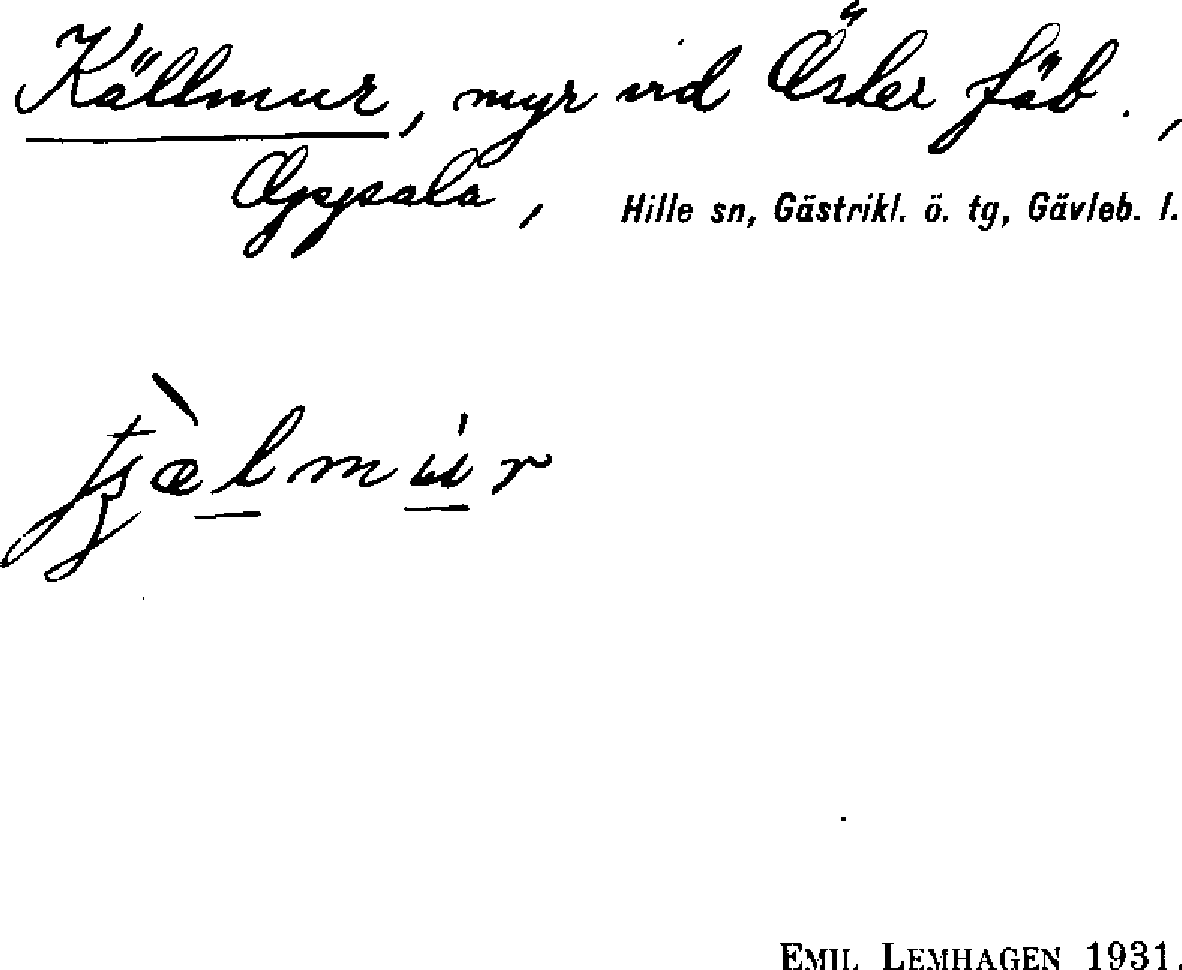 Källmur, myr vid Öster fäb. ,
Oppala, Hille sn, Gästrikl. ö. tg, Gävleb. l.
EMIL LEMHAGEN 1931.